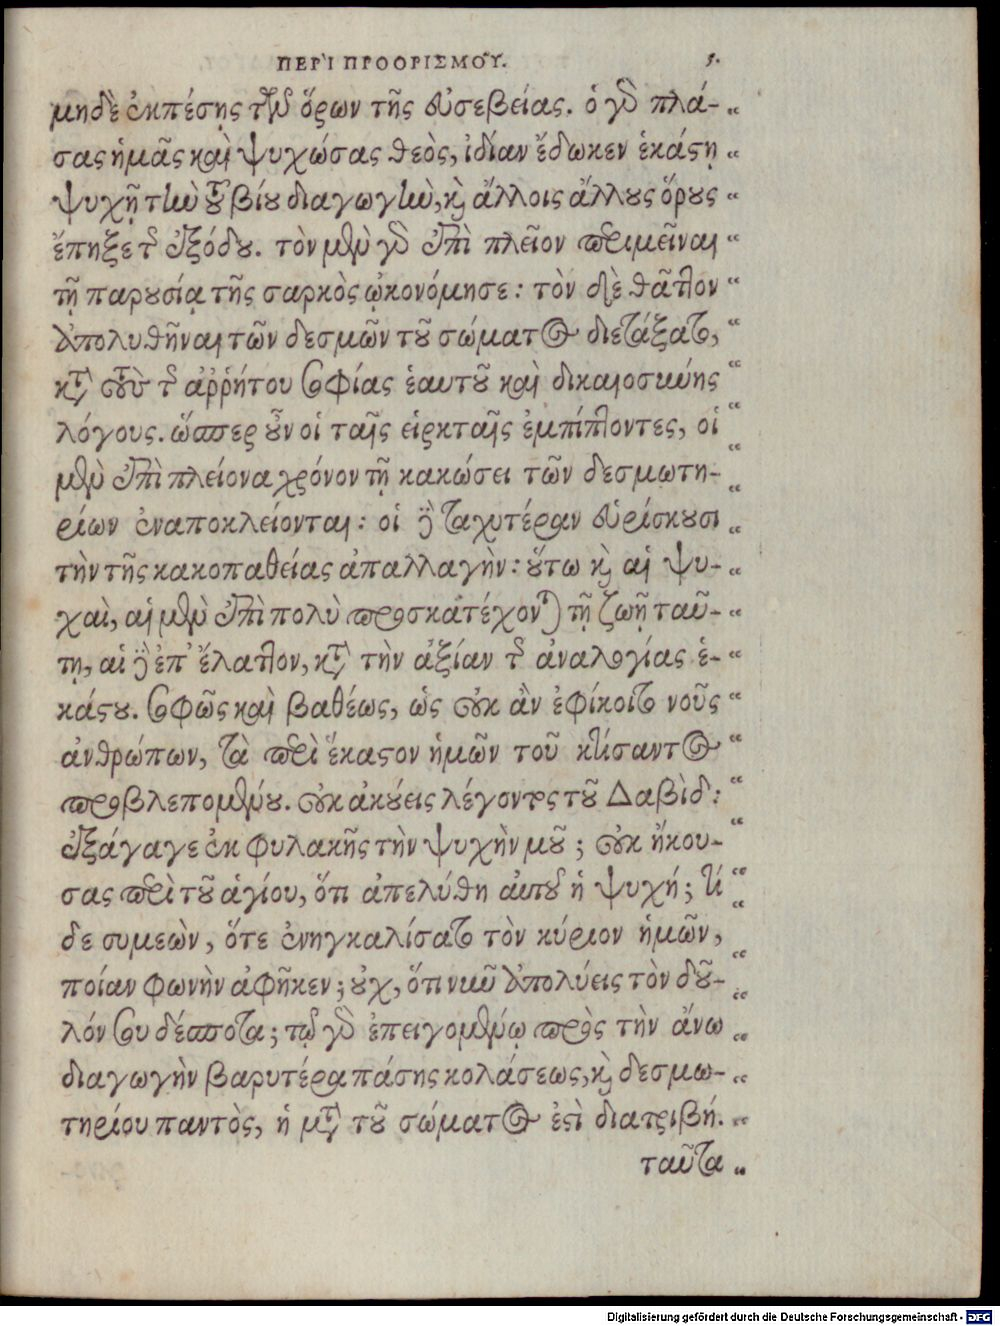 ΠΕΡῚ ΠΡΟΟΡΙΣΜΟΥ͂. 5.
μηδὲ ἐκπέσης τῶν ὅρων τῆς εὐσεβείας. ὁ γὸ πλά- „
σας ἡμᾶς καὶ ψυχώσας θεὸς, ἰδίαν ἔδωκεν ἑκάστῃ „
ψυχῇ τὴν τοῦ βίου διαγωγὴν, κὶ ἄλλοις ἄλλους ὅρους „
ἔπηξε τῆς ἐξόδου. τὸν μὲν γὸ ἐπὶ πλεῖον περιμεῖναι „
τῇ παρουσίᾳ τῆς σαρκὸς ᾠκονόμησε: τὸν δὲ θᾶττον „
ἀπολυθῆναι τῶν δεσμῶν τοῦ σώματος διετάξατο, „
κτ̀ τοὺς τῆς ἀῤῥήτου σοφίας ἑαυτοῦ καὶ δικαιοσύνης „
λόγους. ὥσπερ οὖν οἱ ταῖς εἱρκταῖς ἐμπίπτοντες, οἱ „
μὲν ἐπὶ πλείονα χρόνον τῇ κακώσει τῶν δεσμωτη- „
ρίων ἐναποκλείονται: οἱ δὲ ταχυτέραν εὑρίσκουσι „
τὴν τῆς κακοπαθείας ἀπαλλαγὴν: οὕτω κὶ αἱ ψυ- „
χαὶ, αἱ μὲν ἐπὶ πολὺ προσκατέχονται τῇ ζωῇ ταύ- „
τῃ, αἱ δὲ ἐπ' ἔλαττον, κτ̀ τὴν ἀξίαν τῆς ἀναλογίας ἑ- „
κάστου. σοφῶς καὶ βαθέως, ὡς οὐκ ἂν ἐφίκοιτο νοῦς „
ἀνθρώπων, τὰ περὶ ἕκαστον ἡμῶν τοῦ κτίσαντος „
προβλεπομένου. οὐκ ἀκούεις λέγοντος τοῦ Δαβίδ: „
ἐξάγαγε ἐκ φυλακῆς τὴν ψυχὴν μοῦ; οὐκ ἤκου- „
σας περὶ τοῦ ἁγίου, ὅτι ἀπελύθη αὐτοῦ ἡ ψυχή; τί „
δε συμεὼν, ὅτε ἐνηγκαλίσατο τὸν κύριον ἡμῶν, „
ποίαν φωνὴν ἀφῆκεν; οὐχ, ὅτι νῦν ἀπολύεις τὸν δοῦ- „
λόν σου δέσποτα; τῷ γὸ ἐπειγομένῳ πρὸς τὴν ἄνω „
διαγωγὴν βαρυτέρα πάσης κολάσεως, κὶ δεσμω- „
τηρίου παντὸς, ἡ μτ̀ τοῦ σώματος ἐστὶ διατριβή. „
ταῦτα „
Digitalisierung gefördert durch die Deutsche Forschungsgemeinschaft - DFG